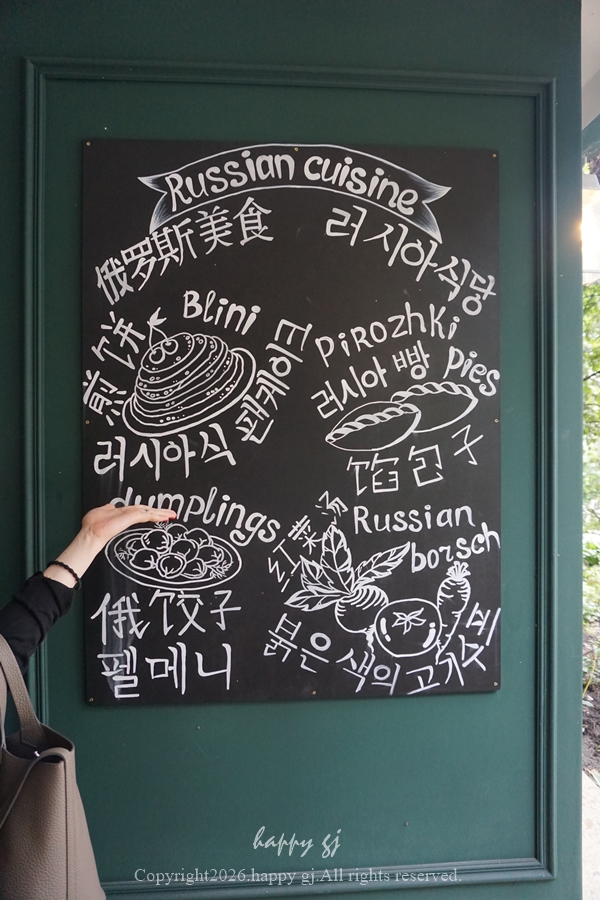 Russian cuisine
俄罗斯美食
러시아식당
Blini
煎饼
팬케이크
러시아식
Pirozhki
러시아 빵
pies
馅包子
dumplings
俄饺子
펠메니
红菜汤
Russian
borsch
붉은 색의 고기
happy gj
Copyright2026.happy gj.All rights reserved.